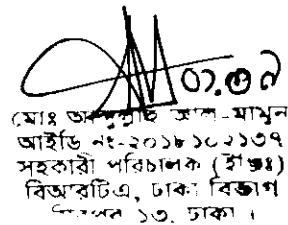 ০১.৩.৭
মোঃ আল-মামুন
আইডি নং-২০১৮১০২১৩৭
সহকারী পরিচালক (ইঞ্জিঃ)
বিআরটিএ, ঢাকা বিভাগ
১৩, ঢাকা ।